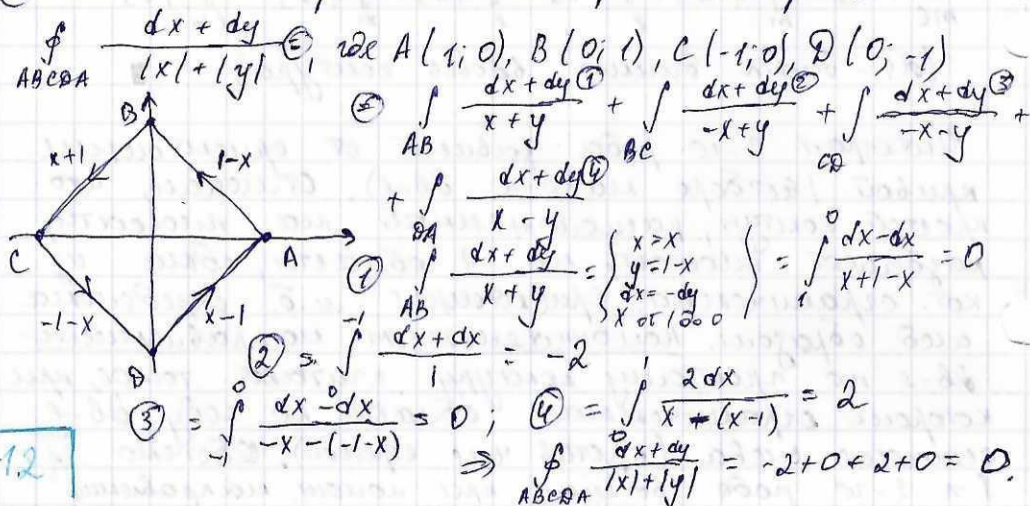 ∮_{ABCDA} \frac{dx + dy}{|x| + |y|} ⊜, где A(1; 0), B(0; 1), C(-1; 0), D(0; -1)
⊜ ∫_{AB} \frac{dx+dy}{x+y} ① + ∫_{BC} \frac{dx+dy}{-x+y} ② + ∫_{CD} \frac{dx+dy}{-x-y} ③ +
+ ∫_{DA} \frac{dx+dy}{x-y} ④
B
x+1
1-x
C
A
-1-x
x-1
D
① ∫_{AB} \frac{dx+dy}{x+y} = { x=x y=1-x dx=-dy x от 1 до 0 } = ∫_1^0 \frac{dx-dx}{x+1-x} = 0
② = ∫_0^{-1} \frac{dx+dx}{1} = -2
③ = ∫_{-1}^0 \frac{dx-dx}{-x-(-1-x)} = 0; ④ = ∫_0^1 \frac{2dx}{x-(x-1)} = 2
⇒ ∮_{ABCDA} \frac{dx+dy}{|x|+|y|} = -2+0+2+0=0.
12